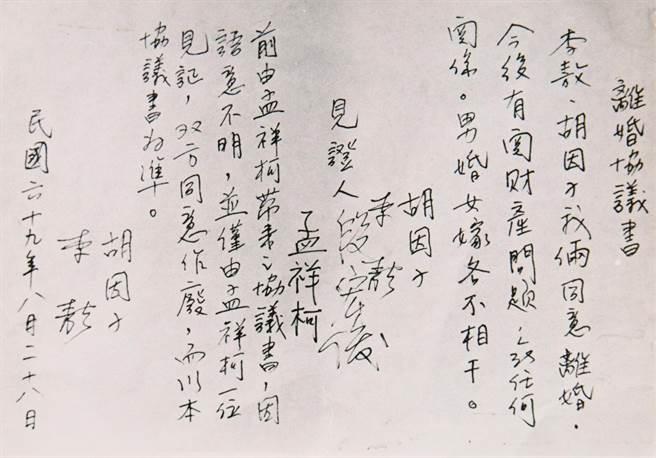 離婚協議書
李敖、胡因子我倆同意離婚。
今後有關財產問題,
任何
關係。男婚女嫁各不相干。
胡因子
李敖
見證人
孟祥柯
前由孟祥柯帶來之協議書,因
語意不明,並僅由孟祥柯一位
見証,双方同意作廢,而以本
協議書為準。
胡因子
李敖
民國六十九年八月二十八日